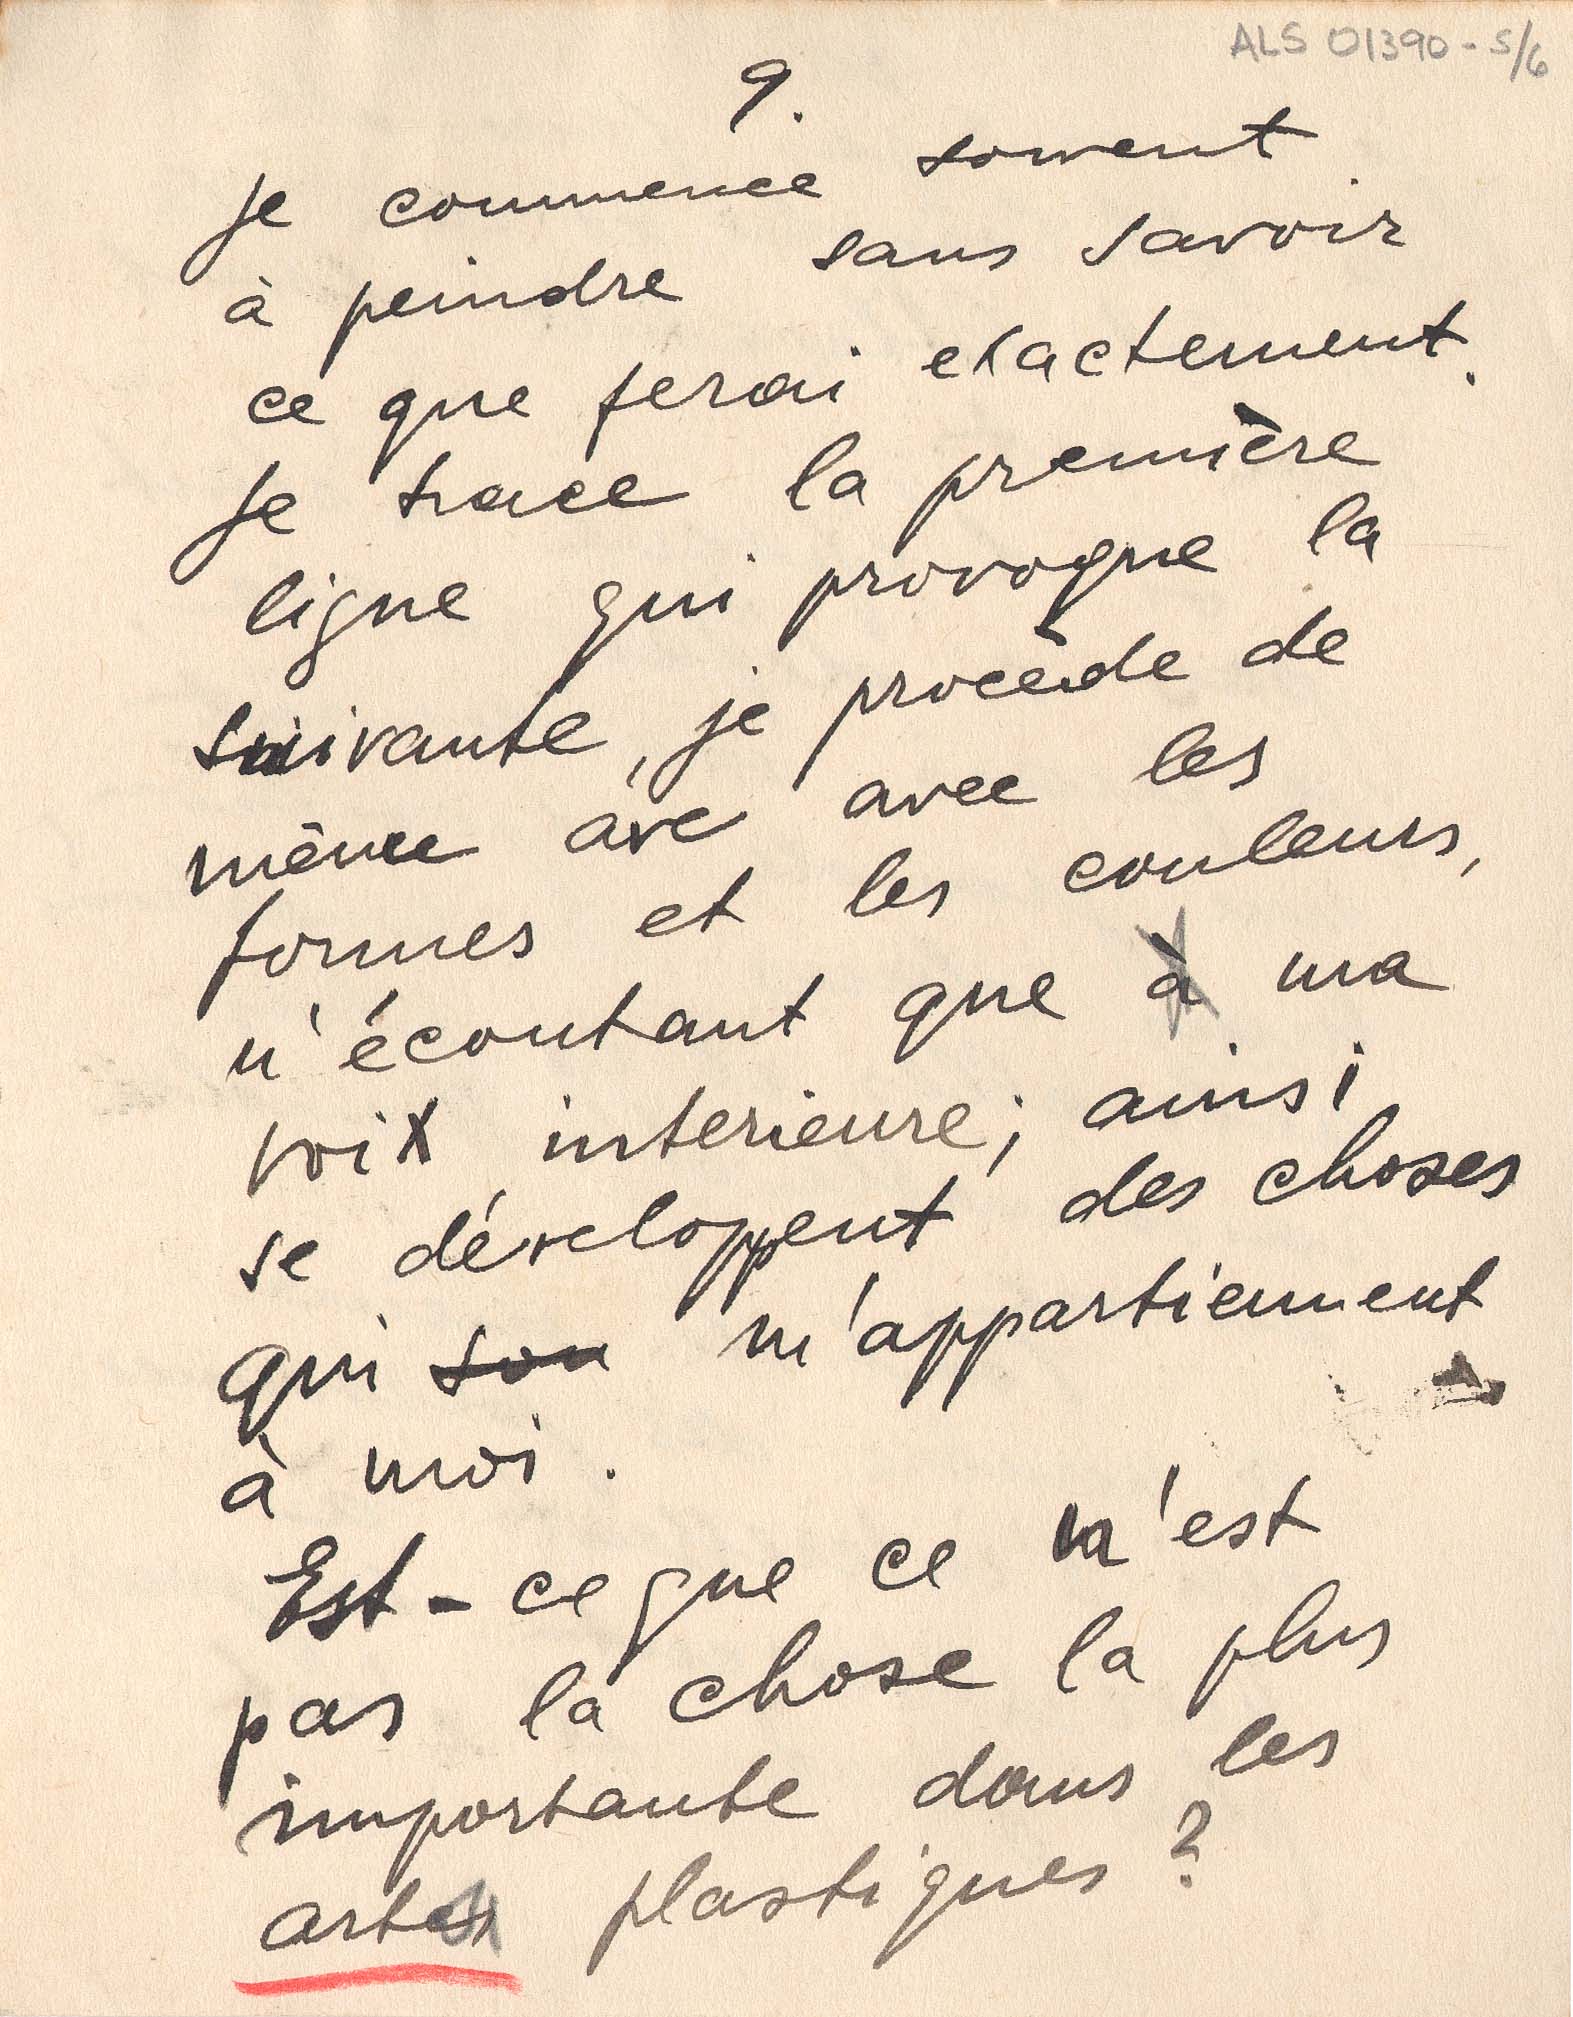 ALS 01390-5/6
9.
je commence souvent
à peindre sans savoir
ce que ferai exactement.
je trace la première
ligne qui provoque la
suivante, je procède de
même ave avec les
formes et les couleurs,
n'écoutant que à ma
voix interieure; ainsi
se développent des choses
qui son m'appartiennent
à moi.
Est-ce que ce n'est
pas la chose la plus
importante dans les
artes plastiques?